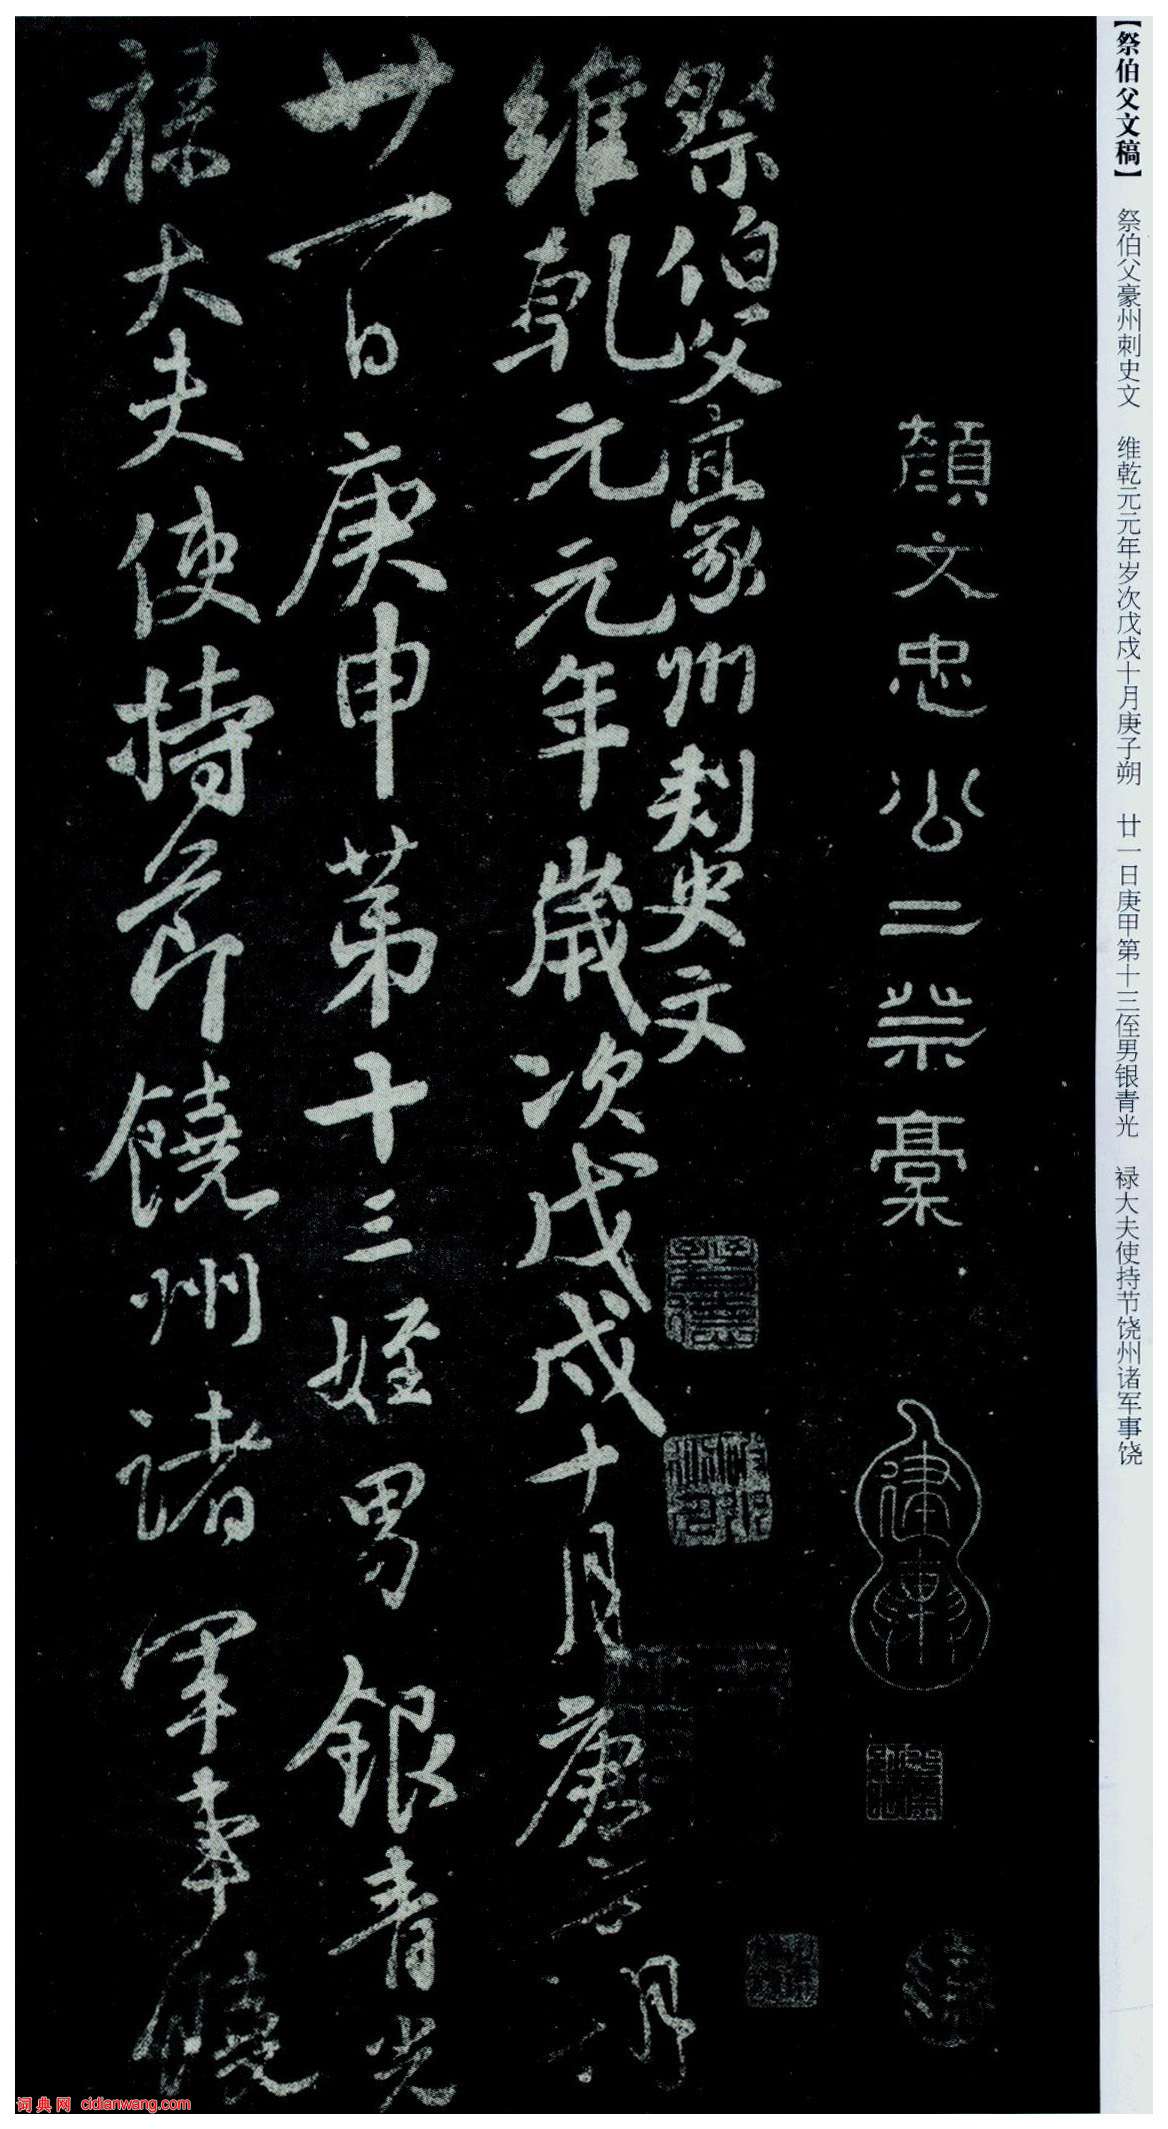 【祭伯父文稿】 祭伯父豪州刺史文 维乾元元年岁次戊戍十月庚子朔 廿一日庚甲第十三侄男银青光 禄大夫使持节饶州诸军事饶
顔文忠公二祭稾
祭伯父豪州刺史文
維乾元元年歲次戊戌十月庚子朔
廿一日庚申第十三姪男銀青光
祿大夫使持節饒州諸軍事饒
词典网 cidianwang.com